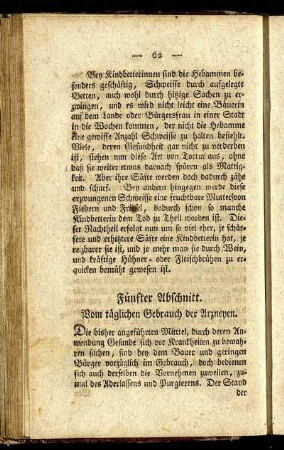 — 62 —
Bey Kindbetterinnen sind die Hebammen be-
sonders geschäftig, Schweisse durch aufgelegte
Betten, auch wohl durch hitzige Sachen zu er-
zwingen, und es wird nicht leicht eine Bäuerin
auf dem Lande oder Bürgersfrau in einer Stadt
in die Wochen kommen, der nicht die Hebamme
eine gewisse Anzahl Schweisse zu halten befiehlt.
Viele, deren Gesundheit gar nicht zu verderben
ist, stehen nun diese Art von Tortur aus, ohne
daß sie weiter etwas darnach spüren als Mattig-
keit. Aber ihre Säfte werden doch dadurch zähe
und scharf. Bey andern hingegen wurde diese
erzwungenen Schweisse eine fruchtbare Mutter von
Fiebern und Friesel, dadurch schon so manche
Kindbetterin dem Tod zu Theil worden ist. Die-
ser Nachtheil erfolgt nun um so viel eher, je schär-
fere und erhitztere Säfte eine Kindbetterin hat, je
reizbarer sie ist, und je mehr man sie durch Wein,
und kräftige Hühner- oder Fleischbrühen zu er-
quicken bemüht gewesen ist.
Fünfter Abschnitt.
Vom täglichen Gebrauch der Arzneyen.
Die bisher angeführten Mittel, durch deren An-
wendung Gesunde sich vor Krankheiten zu bewah-
ren suchen, sind bey dem Bauer und geringen
Bürger vorzüglich im Gebrauch, doch bedienen
sich auch derselben die Vornehmen zuweilen, zu-
mal des Aderlassens und Purgierens. Der Stand
der